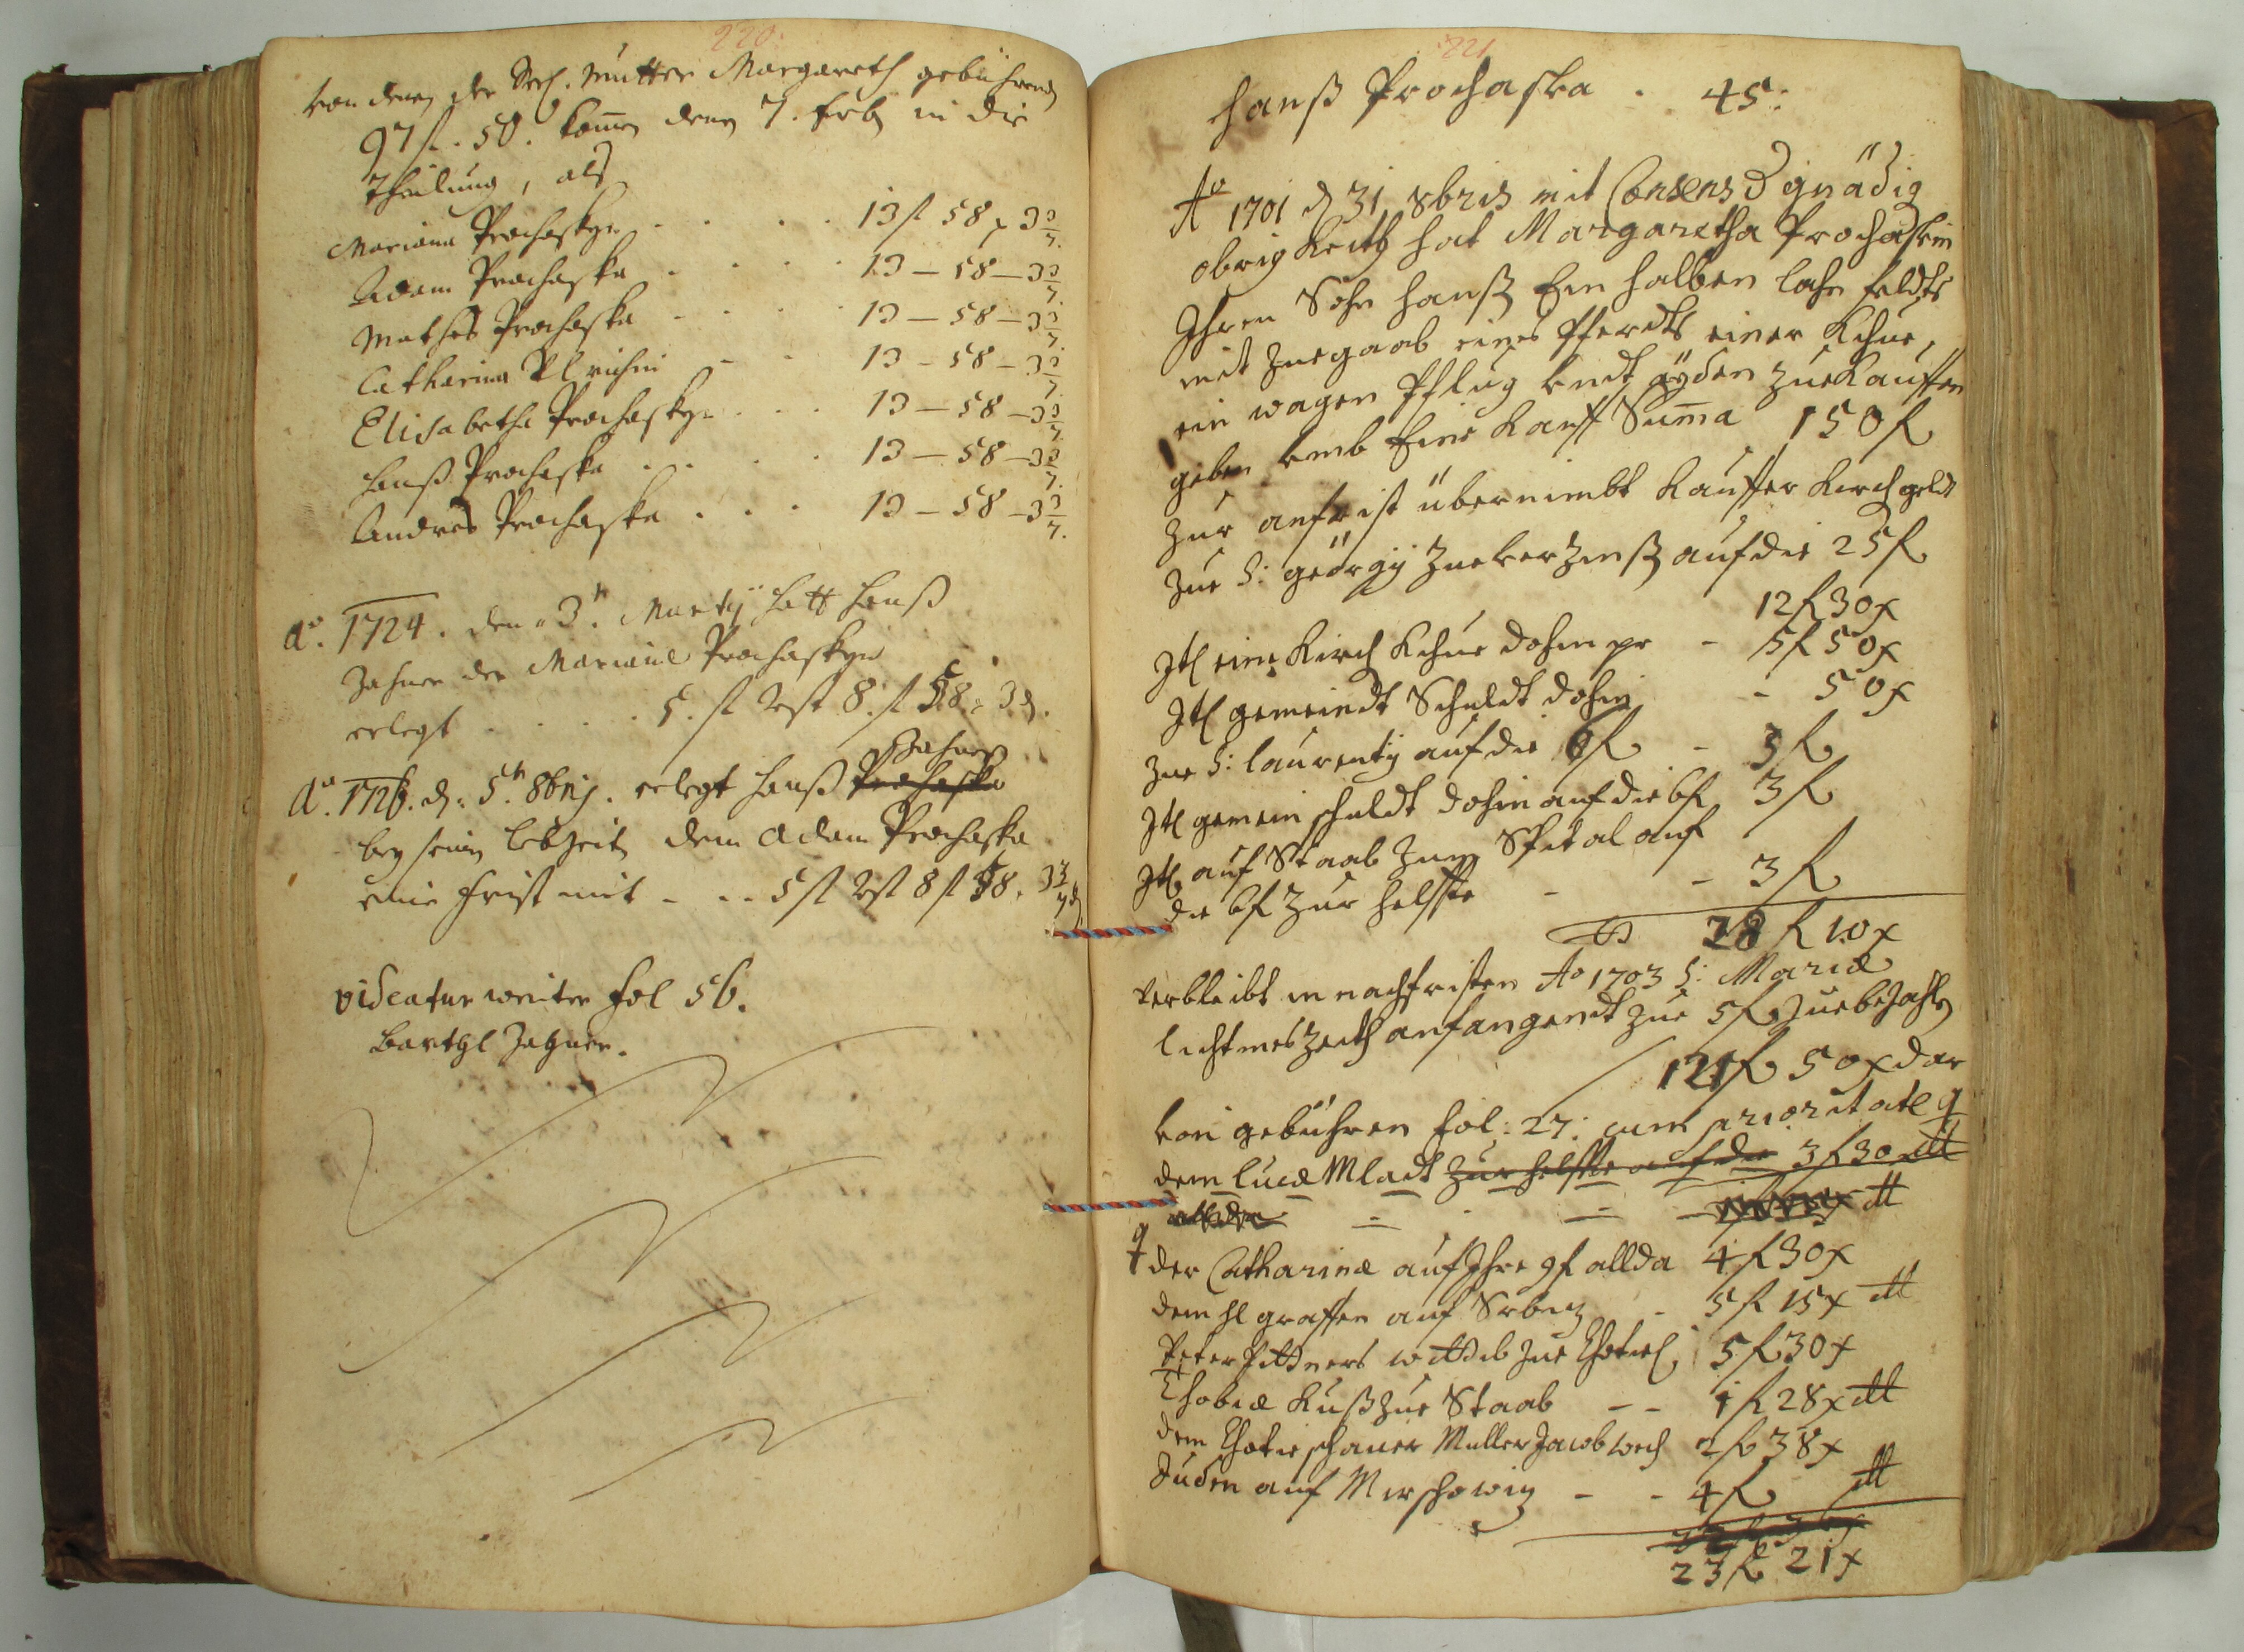 220.
Von denen der Seel. Mutter Margareth gebührend
97 fl. 50. komen denen 7. Erb in die
Theilung, als
Mariana Prochaskyn . . . . 13 fl 58 x 3 3/7.
Adam Prochaska . . . . 13 — 58 — 3 3/7.
Mathes Prochaska . . . . 13 — 58 — 3 3/7.
Catharina - - 13 — 58 — 3 3/7.
Elisabetha Prochaskyn . . . 13 — 58 — 3 3/7.
Hanß Prochaska . . . . 13 — 58 — 3 3/7.
Andres Prochaska . . . 13 — 58 — 3 3/7.
Ao. 1724. den 3tn. Martij hatt Hanß
Zahner der Mariane Prochaskyn
erlegt . . . . 5. fl Rest 8. fl 58 x 3 d.
Zahner
Ao. 1726. d. 5tn. 8bris. erlegt Hanß Prochaska
bey seinen lebzeiten dem Adam Prochaska
eine Frist mit - . . 5 fl Rst 8 fl 58. 3 3/7 d.
videatur weiter fol 56.
Barthl Zahner.
221
Hanß Prochaska . 45:
Ao 1701 d 31 8bris mit Consens d gnädig
obrigkeith hat Margaretha Prochaskin
Ihren Sohn Hanß Ein halben lahn feldts
mit Zuegaab eines Pferdts einer Khue,
ein wagen Pflug undt äyden zuekauffen
geben umb Eine Kauff Suma 150 fl
Zur anfrist übernimbt Kauffer Kirchgeldt
Zue S: geörgij Zueverzinß auf die 25 fl
12 fl 30 x
Itl eine Kirch Khue dohin pr - 5 fl 50 x
Itl gemeindt Schuldt dohin - 50 x
Zue S: laurentij auf die 6 fl - 3 fl
Itl gemein schuldt dohin auf die 6 fl 3 fl
Itl auf Staab Zum Spital auf
die 6 fl zur helffte - - 3 fl
28 fl 10 x
Verbleibt in nachfristen Ao 1703 S: Mariæ
lichtmeszeith anfangendt zue 5 fl zuebezahlen
121 fl 50 x dar
von gebühren fol: 27: cum prioritate
dem Lucæ Mladt zur helffte auf die 3 fl 30 x dt
dt
der Catharinæ auf Ihre 9 fl allda 4 fl 30 x
dem hl graffen auf - 5 fl 15 x dt
Peter wittib zue 5 fl 30 x
Thobiæ Kuß zue Staab - - 1 fl 28 x dt
dem Chotieschauer Müller Jacob 2 fl 38 x
Juden auf - - 4 fl dt
23 fl 21 x